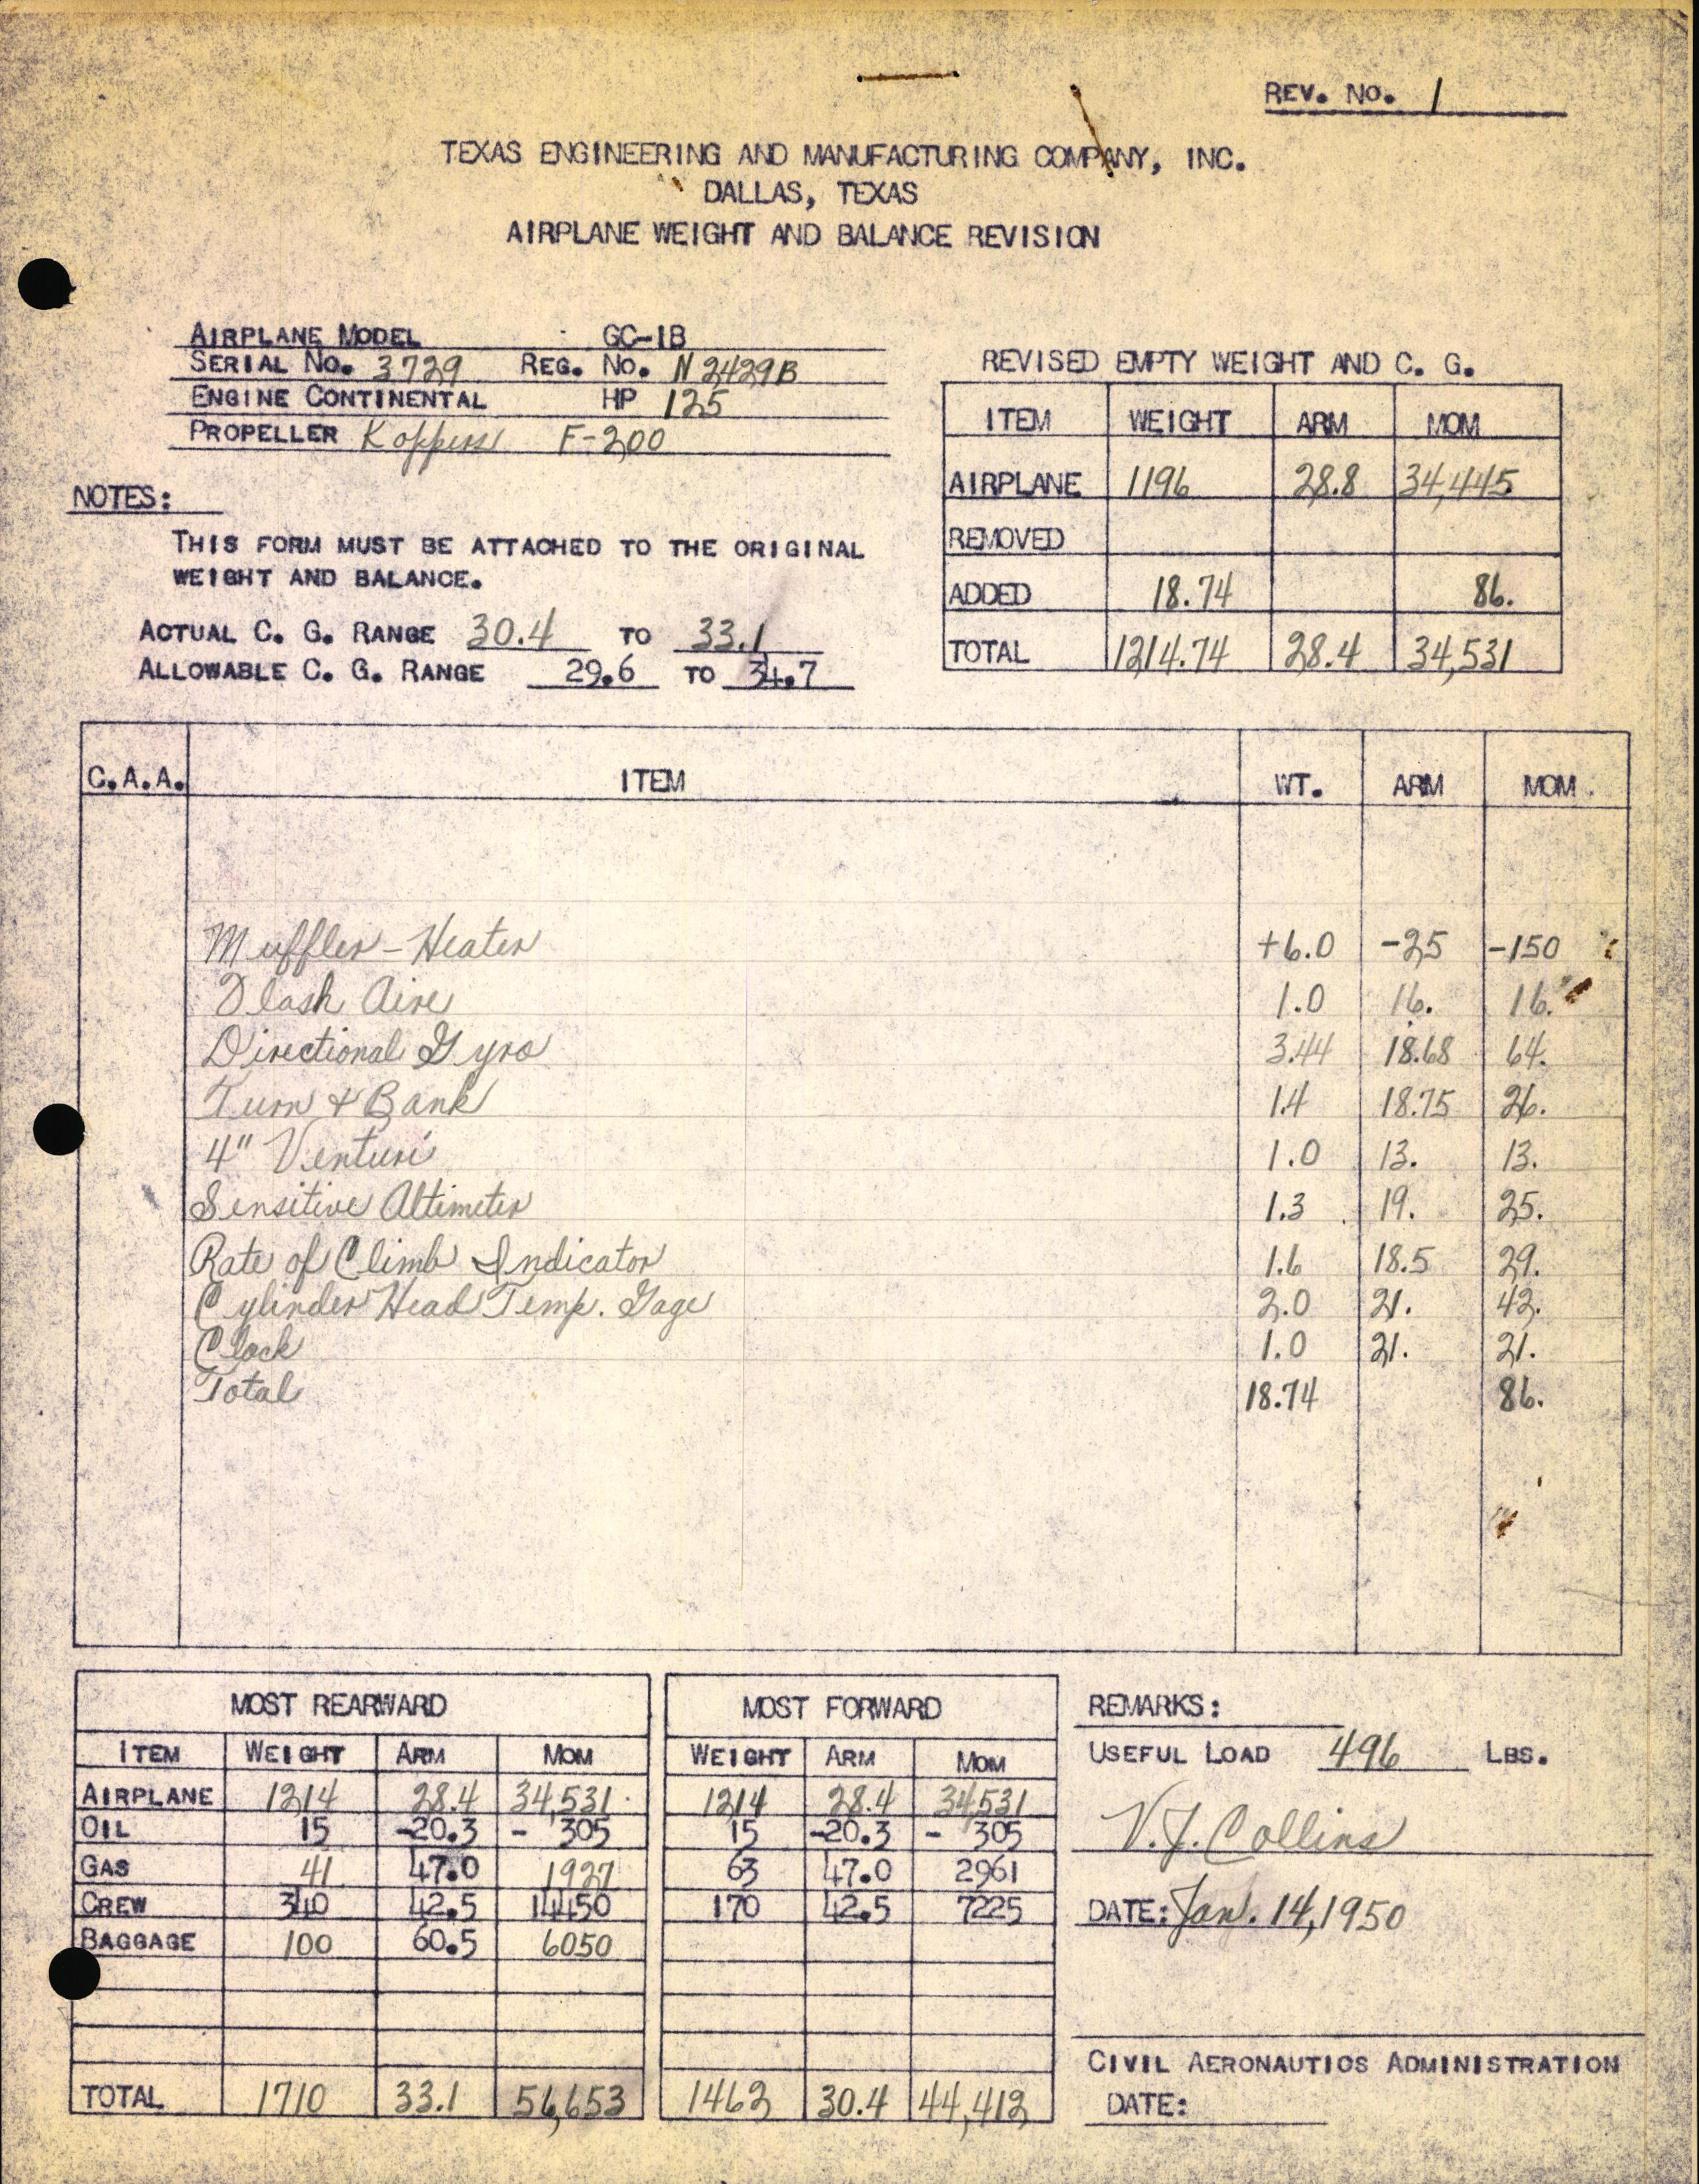 REV. NO. 1
TEXAS ENGINEERING AND MANUFACTURING COMPANY, INC.
DALLAS, TEXAS
AIRPLANE WEIGHT AND BALANCE REVISION
AIRPLANE MODEL GC-1B
SERIAL NO. 3729 REG. NO. N2429B
ENGINE CONTINENTAL HP 125
PROPELLER Koppers F-200
NOTES:
THIS FORM MUST BE ATTACHED TO THE ORIGINAL
WEIGHT AND BALANCE.
ACTUAL C. G. RANGE 30.4 TO 33.1
ALLOWABLE C. G. RANGE 29.6 TO 34.7
REVISED EMPTY WEIGHT AND C. G.
ITEM WEIGHT ARM MOM
AIRPLANE 1196 28.8 34,445
REMOVED
ADDED 18.74 86.
TOTAL 1214.74 28.4 34,531
C.A.A. ITEM WT. ARM MOM.
Muffler - Heater +6.0 -25 -150
Aire 1.0 16. 16.
Directional Gyro 3.44 18.68 64.
Turn & Bank 1.4 18.75 26.
4" Venturi 1.0 13. 13.
Sensitive Altimeter 1.3 19. 25.
Rate of Climb Indicator 1.6 18.5 29.
Cylinder Head Temp. Gage 2.0 21. 42.
Clock 1.0 21. 21.
Total 18.74 86.
MOST REARWARD
ITEM WEIGHT ARM MOM
AIRPLANE 1214 28.4 34,531
OIL 15 -20.3 - 305
GAS 41 47.0 1927
CREW 340 42.5 14450
BAGGAGE 100 60.5 6050
TOTAL 1710 33.1 56,653
MOST FORWARD
WEIGHT ARM MOM
1214 28.4 34531
15 -20.3 - 305
63 47.0 2961
170 42.5 7225
1462 30.4 44,412
REMARKS:
USEFUL LOAD 496 LBS.
V.J. Collins
DATE: Jan. 14, 1950
CIVIL AERONAUTICS ADMINISTRATION
DATE: